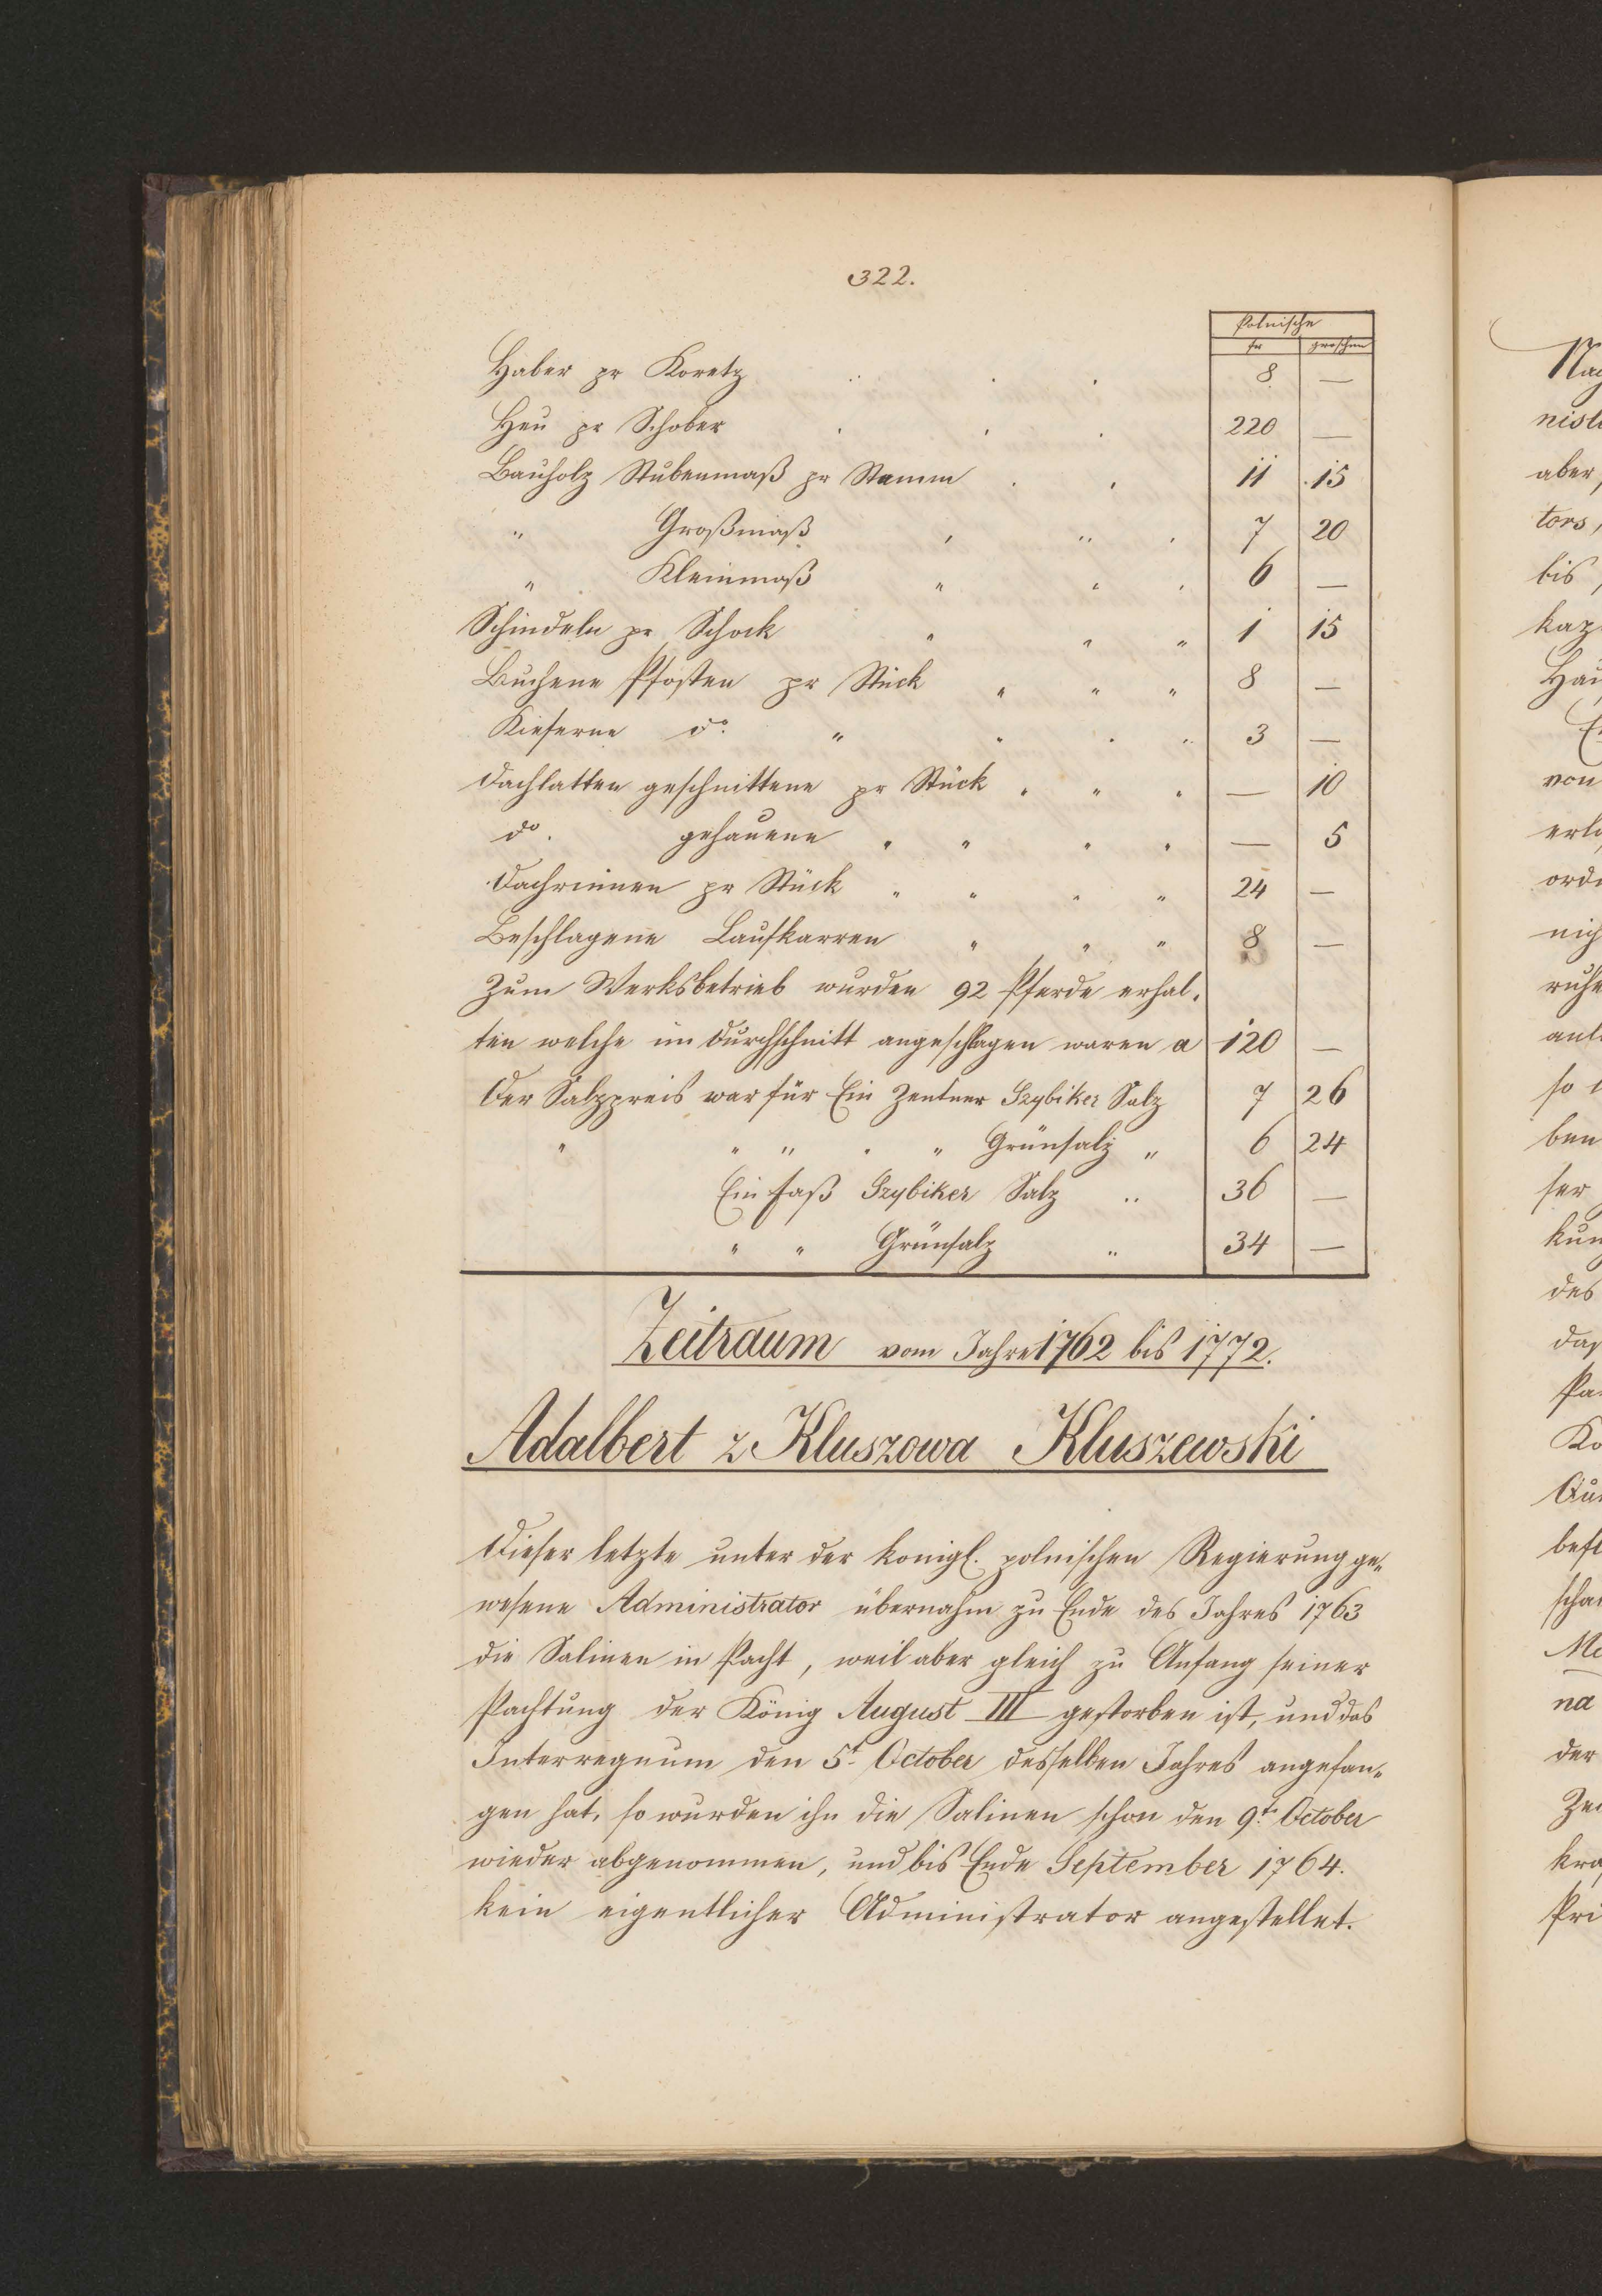 322.
Polnische
fr groschen
Haber pr Koretz . . . 8 —
Heu pr Schober . . . 220 —
Bauholz Stubenmaß pr Stamm . . 11 15
" Großmaß " " " 7 20
" Kleinmaß " " " 6 —
Schindeln pr Schock " " " 1 15
Buchene Pfosten pr Stück " " " 8 —
Kieferne do. " " " " 3 —
Dachlatten geschnittene pr Stück " " " — 10
do. gehauene " " " " — 5
Dachrinnen pr Stück " " " " 24 —
Beschlagene Laufkarren " " " 8 —
Zum Werksbetrieb wurden 92 Pferde erhal-
ten welche im Durchschnitt angeschlagen waren a 120 —
Der Salzpreis war für Ein Zentner Szybiker Salz 7 26
" " " " " Grünsalz " 6 24
Ein Faß Szybiker Salz " 36 —
" " Grünsalz " 34 —
Zeitraum vom Jahre 1762 bis 1772.
Adalbert z Kluszowa Kluszewski
Dieser letzte unter der königl. polnischen Regierung ge-
wesene Administrator übernahm zu Ende des Jahres 1763
die Salinen in Pacht, weil aber gleich zu Anfang seiner
Pachtung der König August III gestorben ist, und das
Interregnum den 5t October desselben Jahres angefan-
gen hat, so wurden ihn die Salinen schon den 9t. October
wieder abgenommen, und bis Ende September 1764.
kein eigentlicher Administrator angestellet.